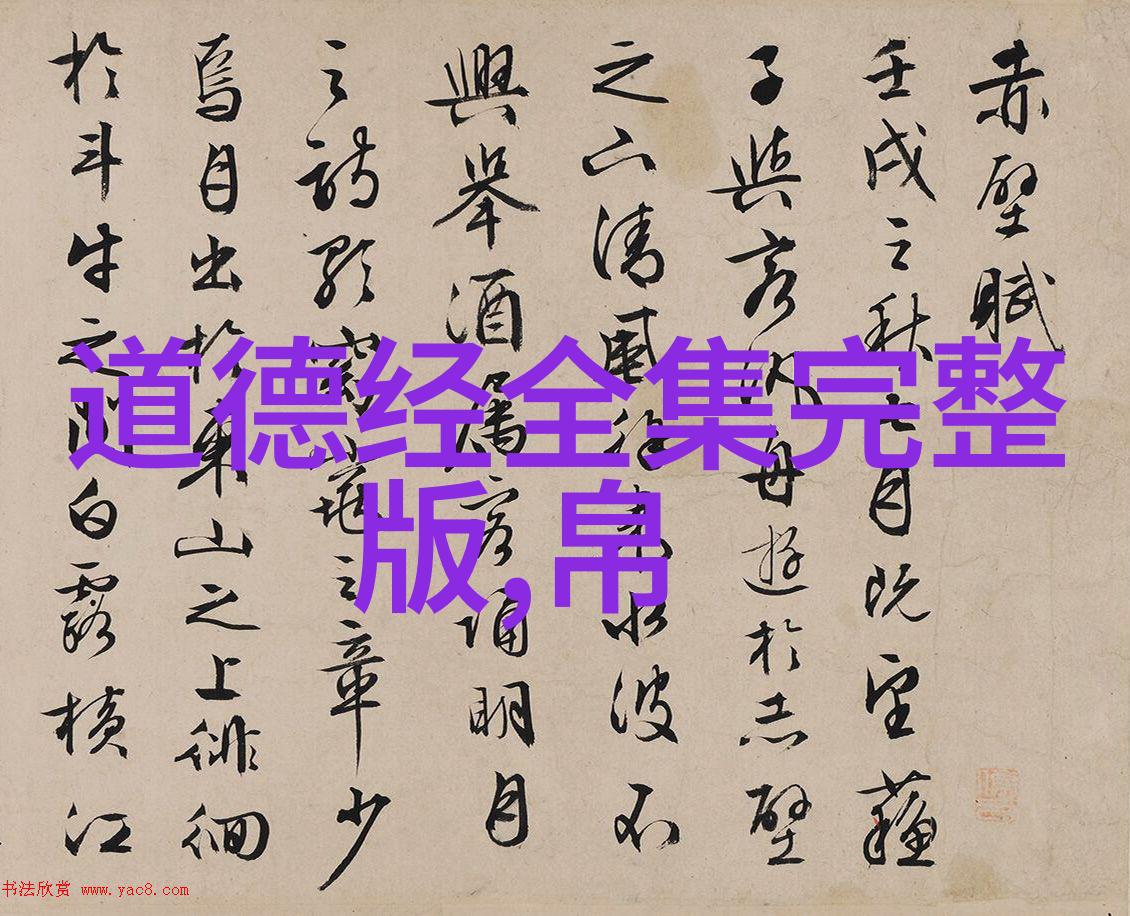 赤壁賦
壬戌之秋七月既望蘇
子與客泛舟遊於赤壁
之下清風徐來水波不
興舉酒屬客誦明月
之詩歌窈窕之章少
焉月出於東山之上徘徊
於斗牛之間白露橫江
道德经全集完整
版,帛
书法欣赏 www.yac8.com